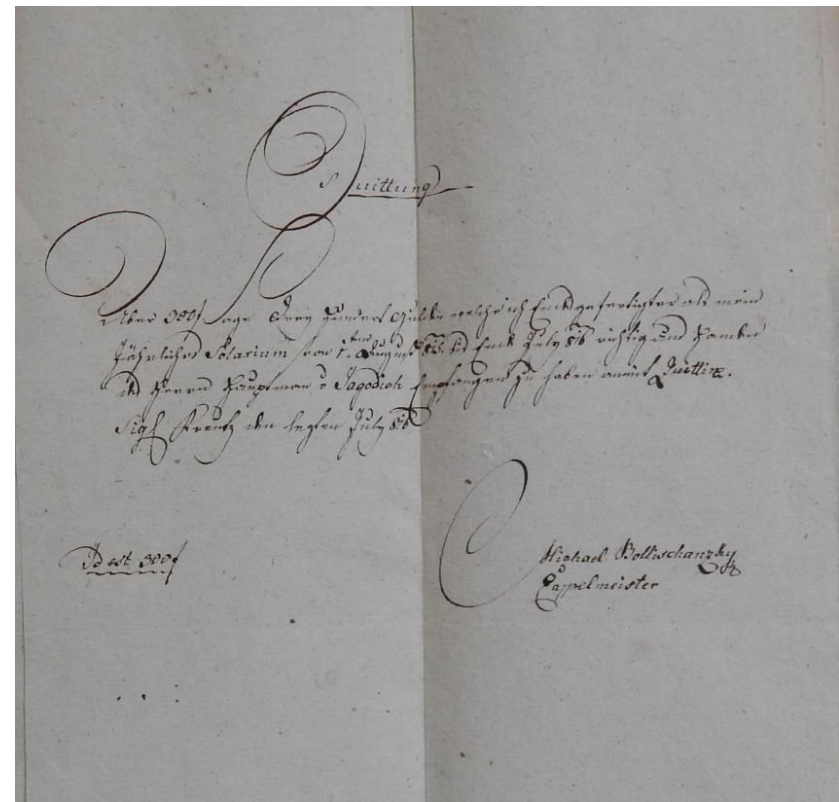 Quittung
Über 300f sage Drey Hundert Gulden welche ich Endesgefertigter als mein
Jährliches Solarium von 1ten August bis Ende July richtig und
Herrn Hauptman v Jagodich Empfangen zu haben anmit Quittire.
Sigl den lezten July
Id est 300f
Michael Bolischanzky
Cappelmeister